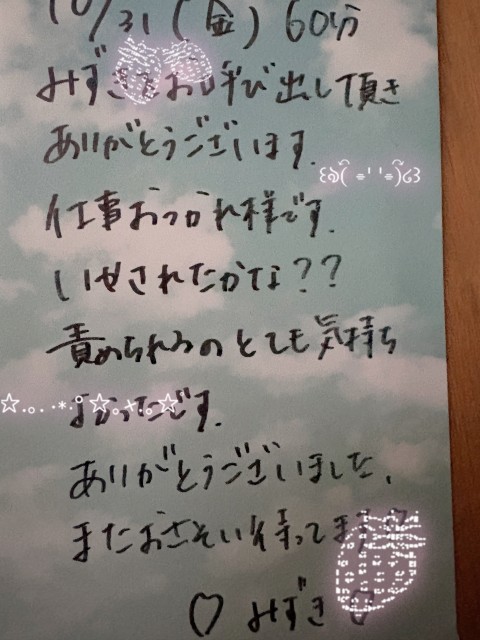 10/31 (金) 60分
みずきをお呼び出し頂き
ありがとうございます.
꒰ঌ( ⁎ᵕᴗᵕ⁎ )໒꒱
仕事おつかれ様です.
いやされたかな??
責められるのとても気持ち
よかったです.
ありがとうございました.
またおさそい待ってます♡
♡ みずき ♡